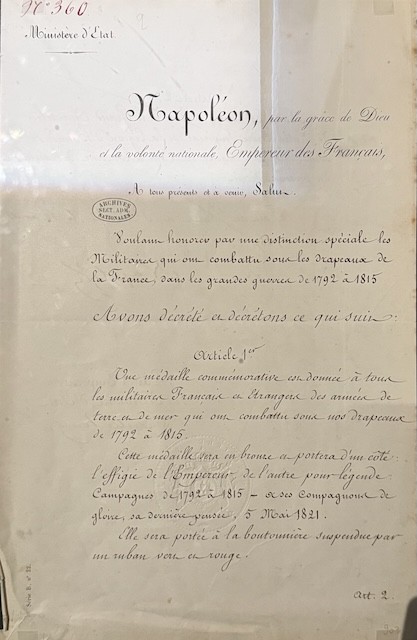 N° 360
Ministère d'Etat
Napoléon, par la grâce de Dieu
et la volonté nationale, Empereur des Français,
A tous présents et à venir, Salut.
ARCHIVES
SECT. ADM.
NATIONALES
Voulant honorer par une distinction spéciale les
Militaires qui ont combattu sous les drapeaux de
la France, dans les grandes guerres de 1792 à 1815
Avons décrété et décrétons ce qui suit :
Article 1er
Une médaille commémorative est donnée à tous
les militaires Français et Etrangers des armées de
terre et de mer qui ont combattu sous nos drapeaux
de 1792 à 1815.
Cette médaille sera en bronze et portera d'un côté
l'effigie de l'Empereur de l'autre pour légende :
Campagnes de 1792 à 1815 - à ses compagnons de
gloire, sa dernière pensée, 5 Mai 1821.
Elle sera portée à la boutonnière suspendue par
un ruban vert et rouge.
Art. 2.